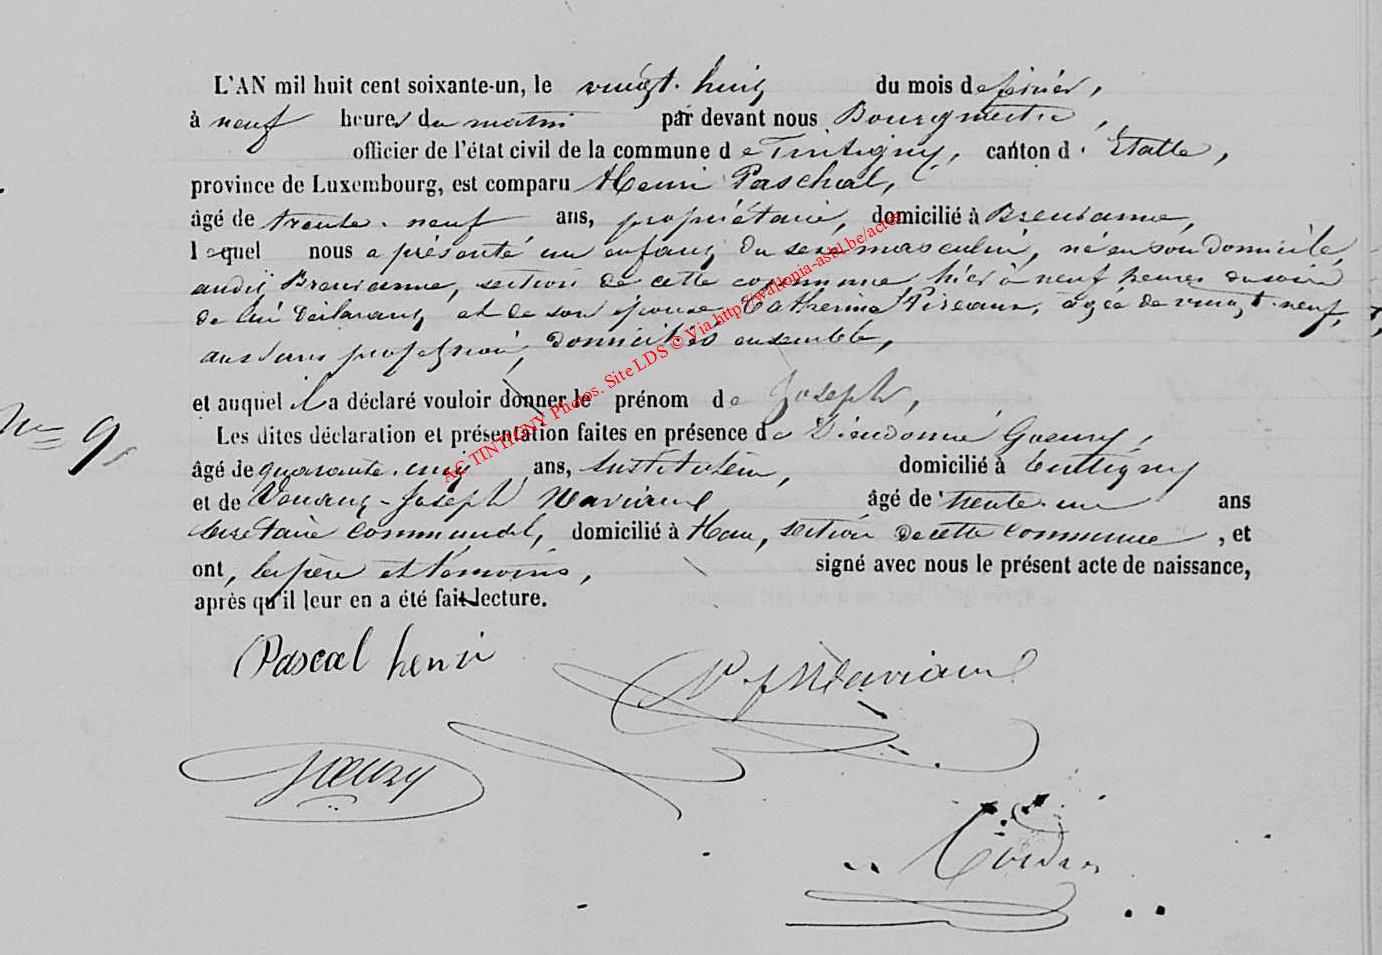 L'AN mil huit cent soixante-un, le vingt-huit du mois de février,
à neuf heures du matin par devant nous Bourgmestre,
officier de l'état civil de la commune de Tintigny, canton d'Etalle,
province de Luxembourg, est comparu Henri Paschal,
âgé de trente-neuf ans, propriétaire, domicilié à Breuvanne,
lequel nous a présenté un enfant du sexe masculin, né en son domicile,
audit Breuvanne, section de cette commune, hier à neuf heures du soir
de lui déclarant et de son épouse Catherine, âgée de vingt-neuf,
ans sans profession, domiciliés ensemble,
et auquel il a déclaré vouloir donner le prénom de Joseph,
N° 9
Les dites déclaration et présentation faites en présence de Dieudonné Goeury,
âgé de quarante-cinq ans, instituteur, domicilié à Tintigny
et de Joseph âgé de trente-un ans
secrétaire communal, domicilié à Han, section de cette commune, et
ont, les père et témoins, signé avec nous le présent acte de naissance,
après qu'il leur en a été fait lecture.
Pascal henri
Goeury
AC TINTIGNY Photos. Site LDS © Via http://wallonia-asbl.be/actes